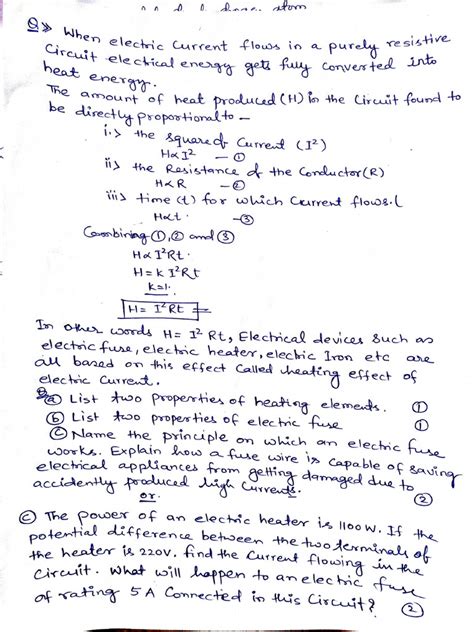 atom
Q>> When electric Current flows in a purely resistive
Circuit electical energy gets fully converted into
heat energy.
The amount of heat produced (H) in the Circuit found to
be directly proportional to –
i.> the square of Current (I²)
H∝I² — ①
ii> the Resistance of the Conductor (R)
H∝R — ②
iii> time (t) for which Current flows.
H∝t. — ③
Combining ①, ② and ③
H∝ I²Rt.
H = k I²Rt
k=1.
H = I²Rt
In other words H = I² Rt, Electrical devices such as
electric fuse, electric heater, electric Iron etc are
all based on this effect Called heating effect of
electric Current.
ⓐ List two properties of heating elements. ①
ⓑ List two properties of electric fuse ①
ⓒ Name the principle on which an electric fuse
works. Explain how a fuse wire is capable of saving
electrical appliances from getting damaged due to
accidently produced high Currents. ②
or.
ⓒ The power of an electric heater is 1100 W. If the
potential difference between the two terminals of
the heater is 220V. find the Current flowing in the
Circuit. What will happen to an electric fuse
of rating 5 A Connected in this Circuit? ②